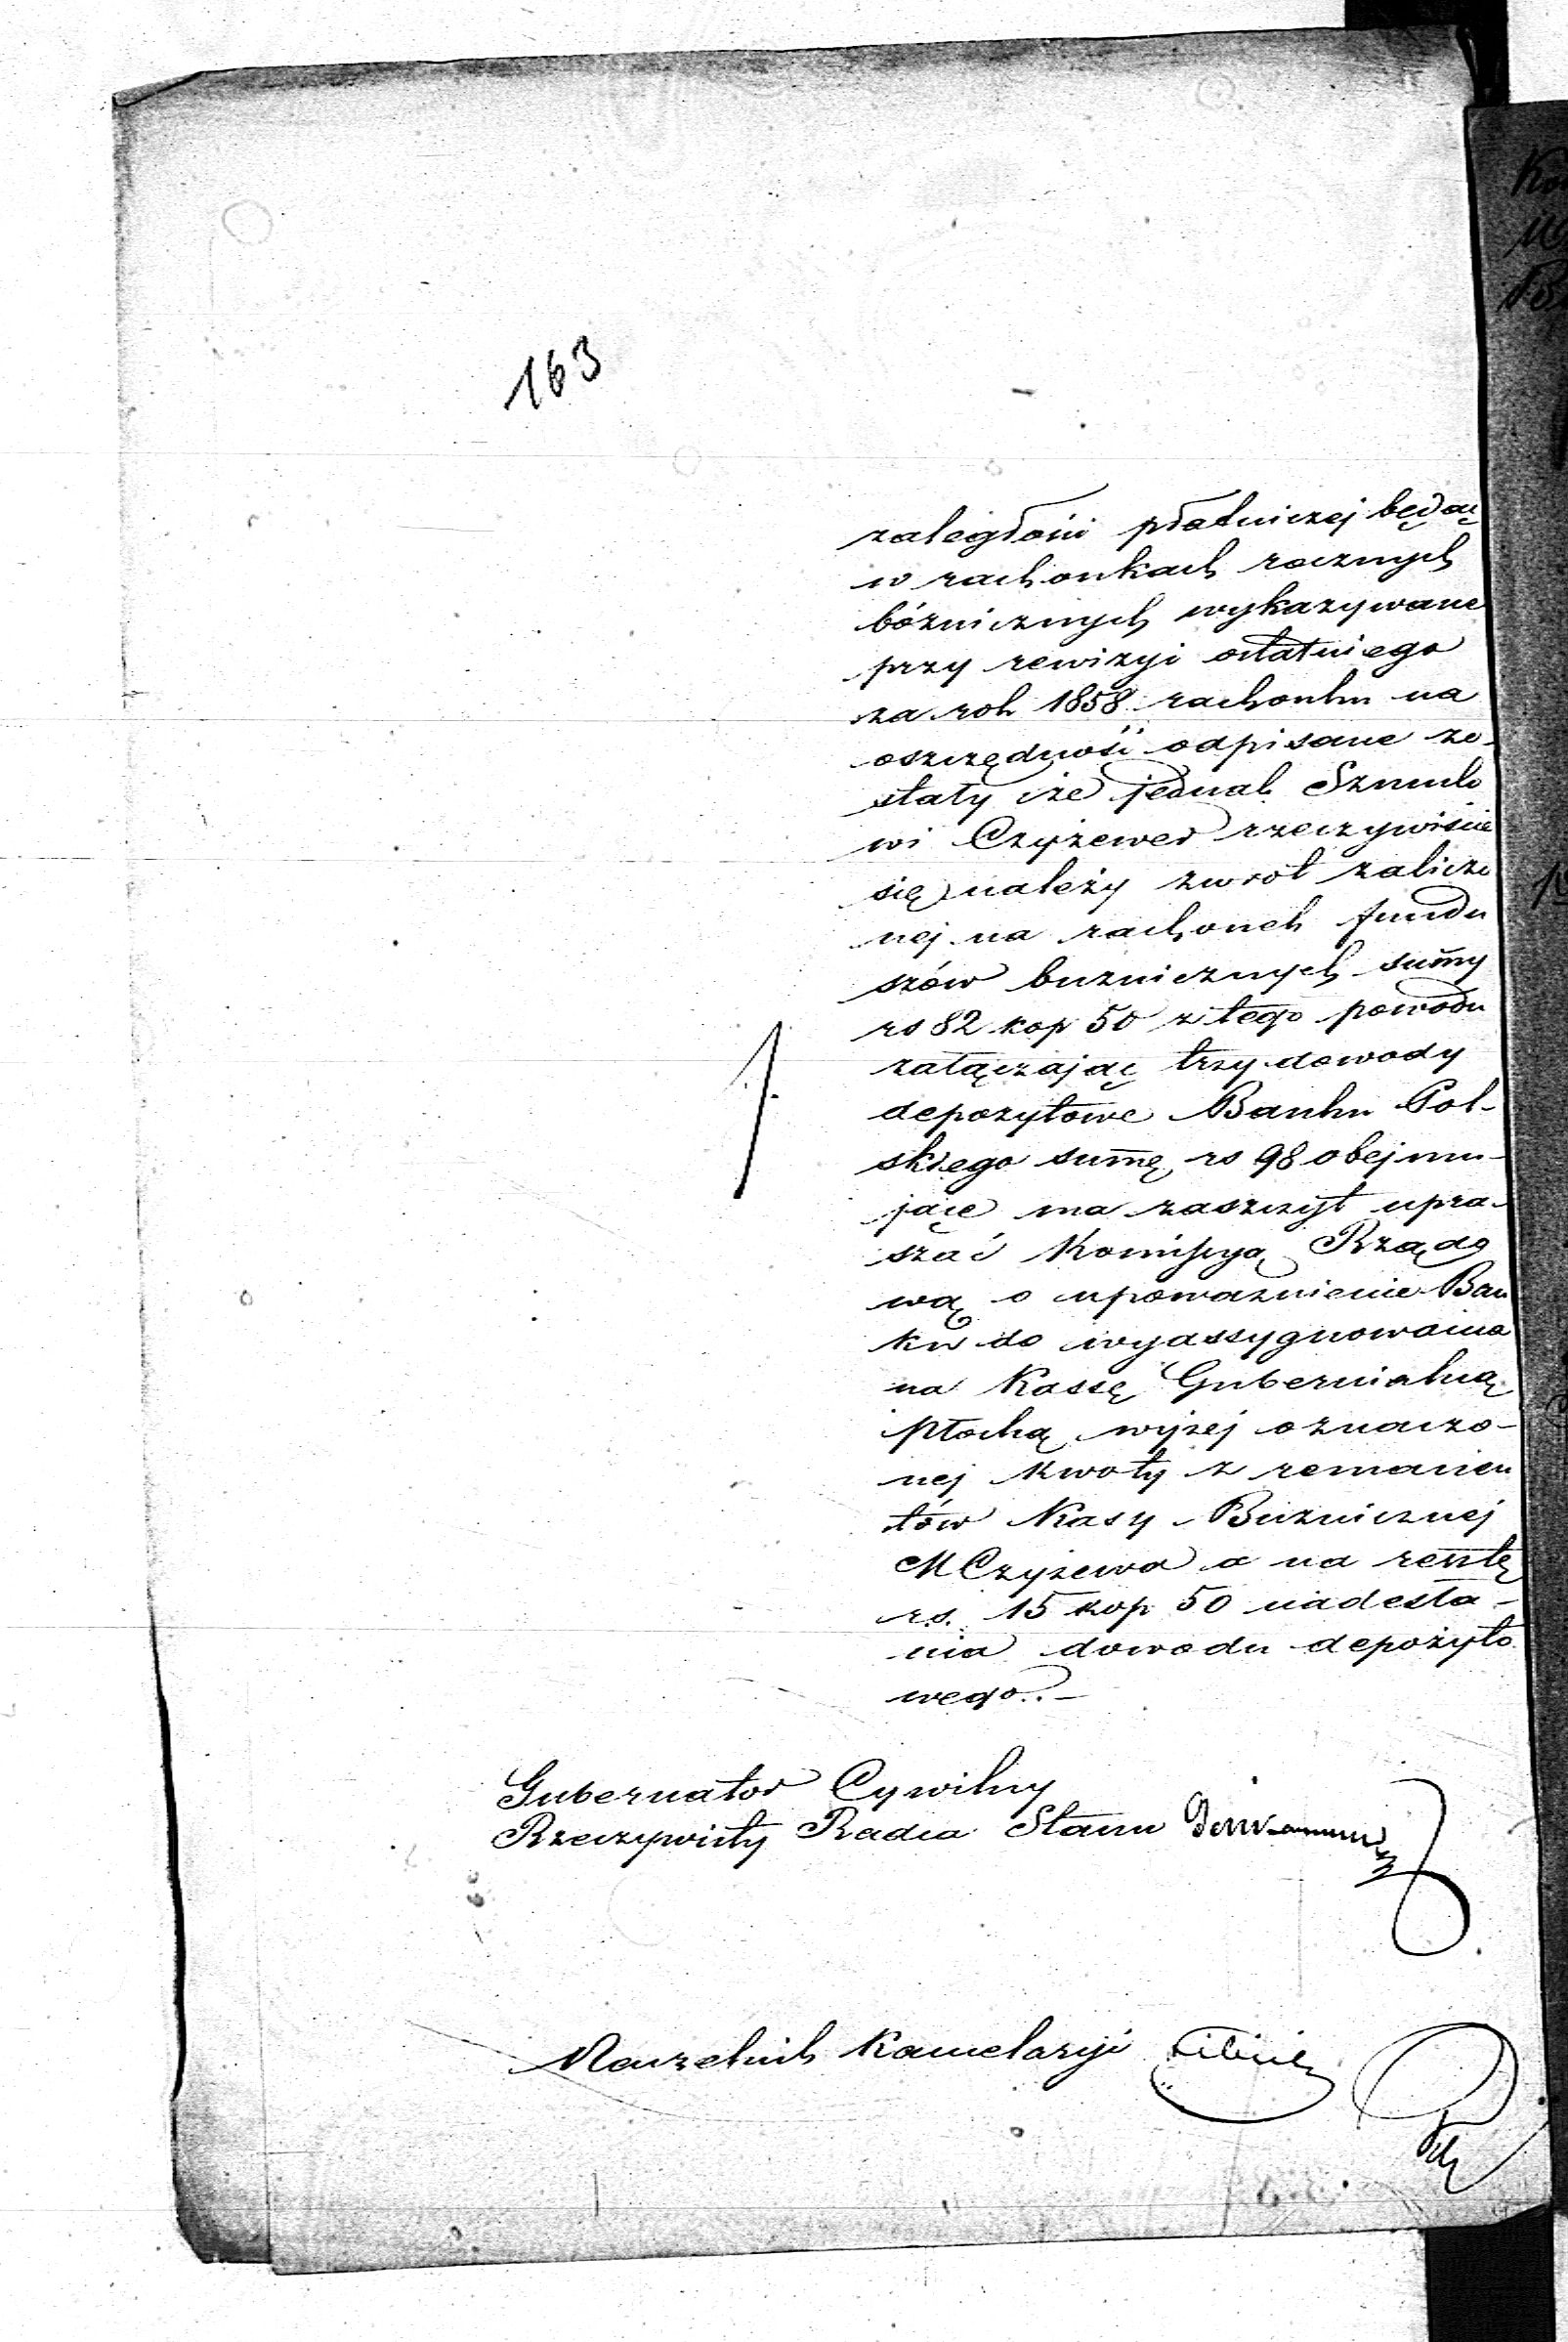 163
zaległości płatniczej będąc
w rachonkach rocznych
bóżnicznych wykazywane
przy rewizyi ostatniego
za rok 1858 rachonku na
oszczędność odpisane zo-
stały że jednak Szmulo
wi Czyżewer rzeczywiście
się należy zwrot zaliczo
nej na rachonek fundu
szów buznicznych sum̄y
rs 82 kop 50 z tego powodu
załączając trzy dowody
depozytowe Banku Pol-
skiego sum̄ę rs 98 obejmu-
jące ma zaszczyt upra-
szać Kom̄issyą Rządo
wą o upoważnienie Ban
ku do wyassygnowania
na Kassę Gubernialną
Płocką wyżej oznaczo-
nej kwoty z remanen
tów Kasy Buznicznej
M Czyżewa a na resztę
rs. 15 kop 50 nadesła-
nia dowodu depozyto
wego..-
Gubernator Cywilny
Rzeczywisty Radca Stanu
Naczelnik Kancelaryi